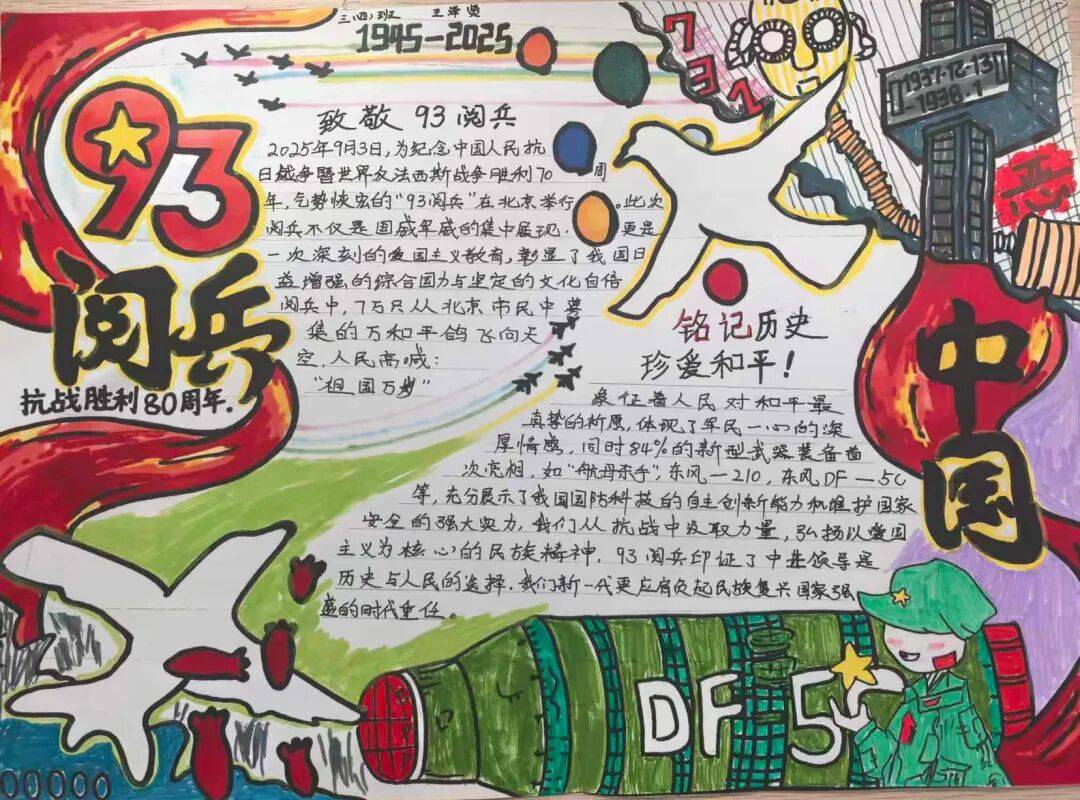 三(四)班 王泽
1945-2025
93
阅兵
抗战胜利80周年.
致敬 93 阅兵
2025年9月3日,为纪念中国人民抗
日战争暨世界反法西斯战争胜利70 周
年,气势恢宏的"93阅兵"在北京举行。此次
阅兵不仅是国威军威的集中展现. 更是
一次深刻的爱国主义教育,彰显了我国日
益增强的综合国力与坚定的文化自信
阅兵中,7万只从北京市民中
集的万和平鸽飞向天
空.人民高喊:
"祖国万岁"
731
1937.12.13
-1938.1
中国
铭记历史
珍爱和平!
象征着人民对和平最
真挚的祈愿,体现了军民一心的深
厚情感,同时84%的新型武器装备首
次亮相,如"航母杀手",东风-21D,东风DF-5C
等,充分展示了我国国防科技的自主创新能力和维护国家
安全的强大实力,我们从抗战中汲取力量,弘扬以爱国
主义为核心的民族精神,93阅兵印证了中共领导是
历史与人民的选择.我们新一代更应肩负起民族复兴国家强
盛的时代重任。
DF-5C
00000